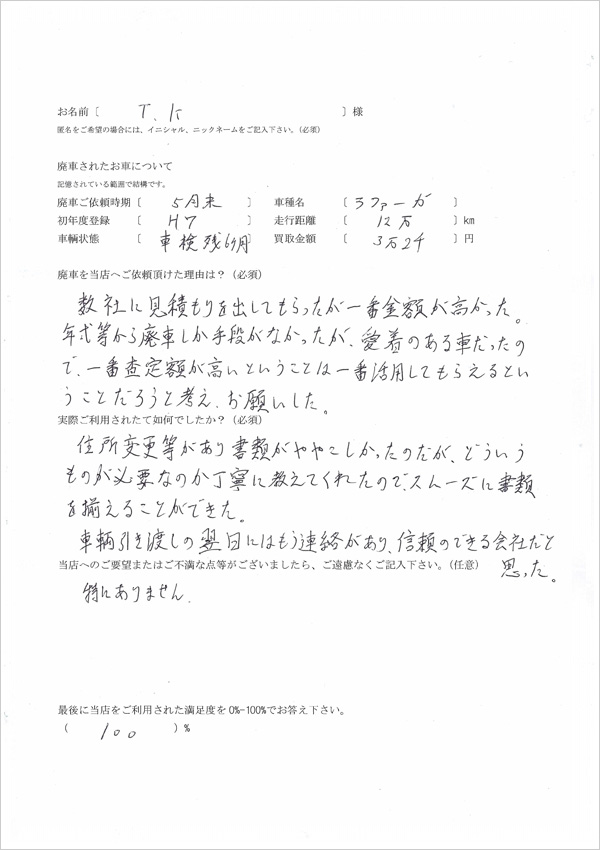 お名前〔 T.K 〕様
匿名をご希望の場合には、イニシャル、ニックネームをご記入下さい。(必須)
廃車されたお車について
記憶されている範囲で結構です。
廃車ご依頼時期〔 5月末 〕 車種名〔 ラファーガ 〕
初年度登録〔 H7 〕 走行距離〔 12万 〕km
車輌状態〔 車検残6ヶ月 〕 買取金額〔 3万2千 〕円
廃車を当店へご依頼頂けた理由は?(必須)
数社に見積もりを出してもらったが一番金額が高かった。
年式等から廃車しか手段がなかったが、愛着のある車だったの
で、一番査定額が高いということは一番活用してもらえるとい
うことだろうと考え、お願いした。
実際ご利用されたて如何でしたか?(必須)
住所変更等があり書類がややこしかったのだが、どういう
ものが必要なのか丁寧に教えてくれたので、スムーズに書類
を揃えることができた。
車輌引き渡しの翌日にはもう連絡があり、信頼のできる会社だと
思った。
当店へのご要望またはご不満な点等がございましたら、ご遠慮なくご記入下さい。(任意)
特にありません.
最後に当店をご利用された満足度を0%-100%でお答え下さい。
( 100 )%